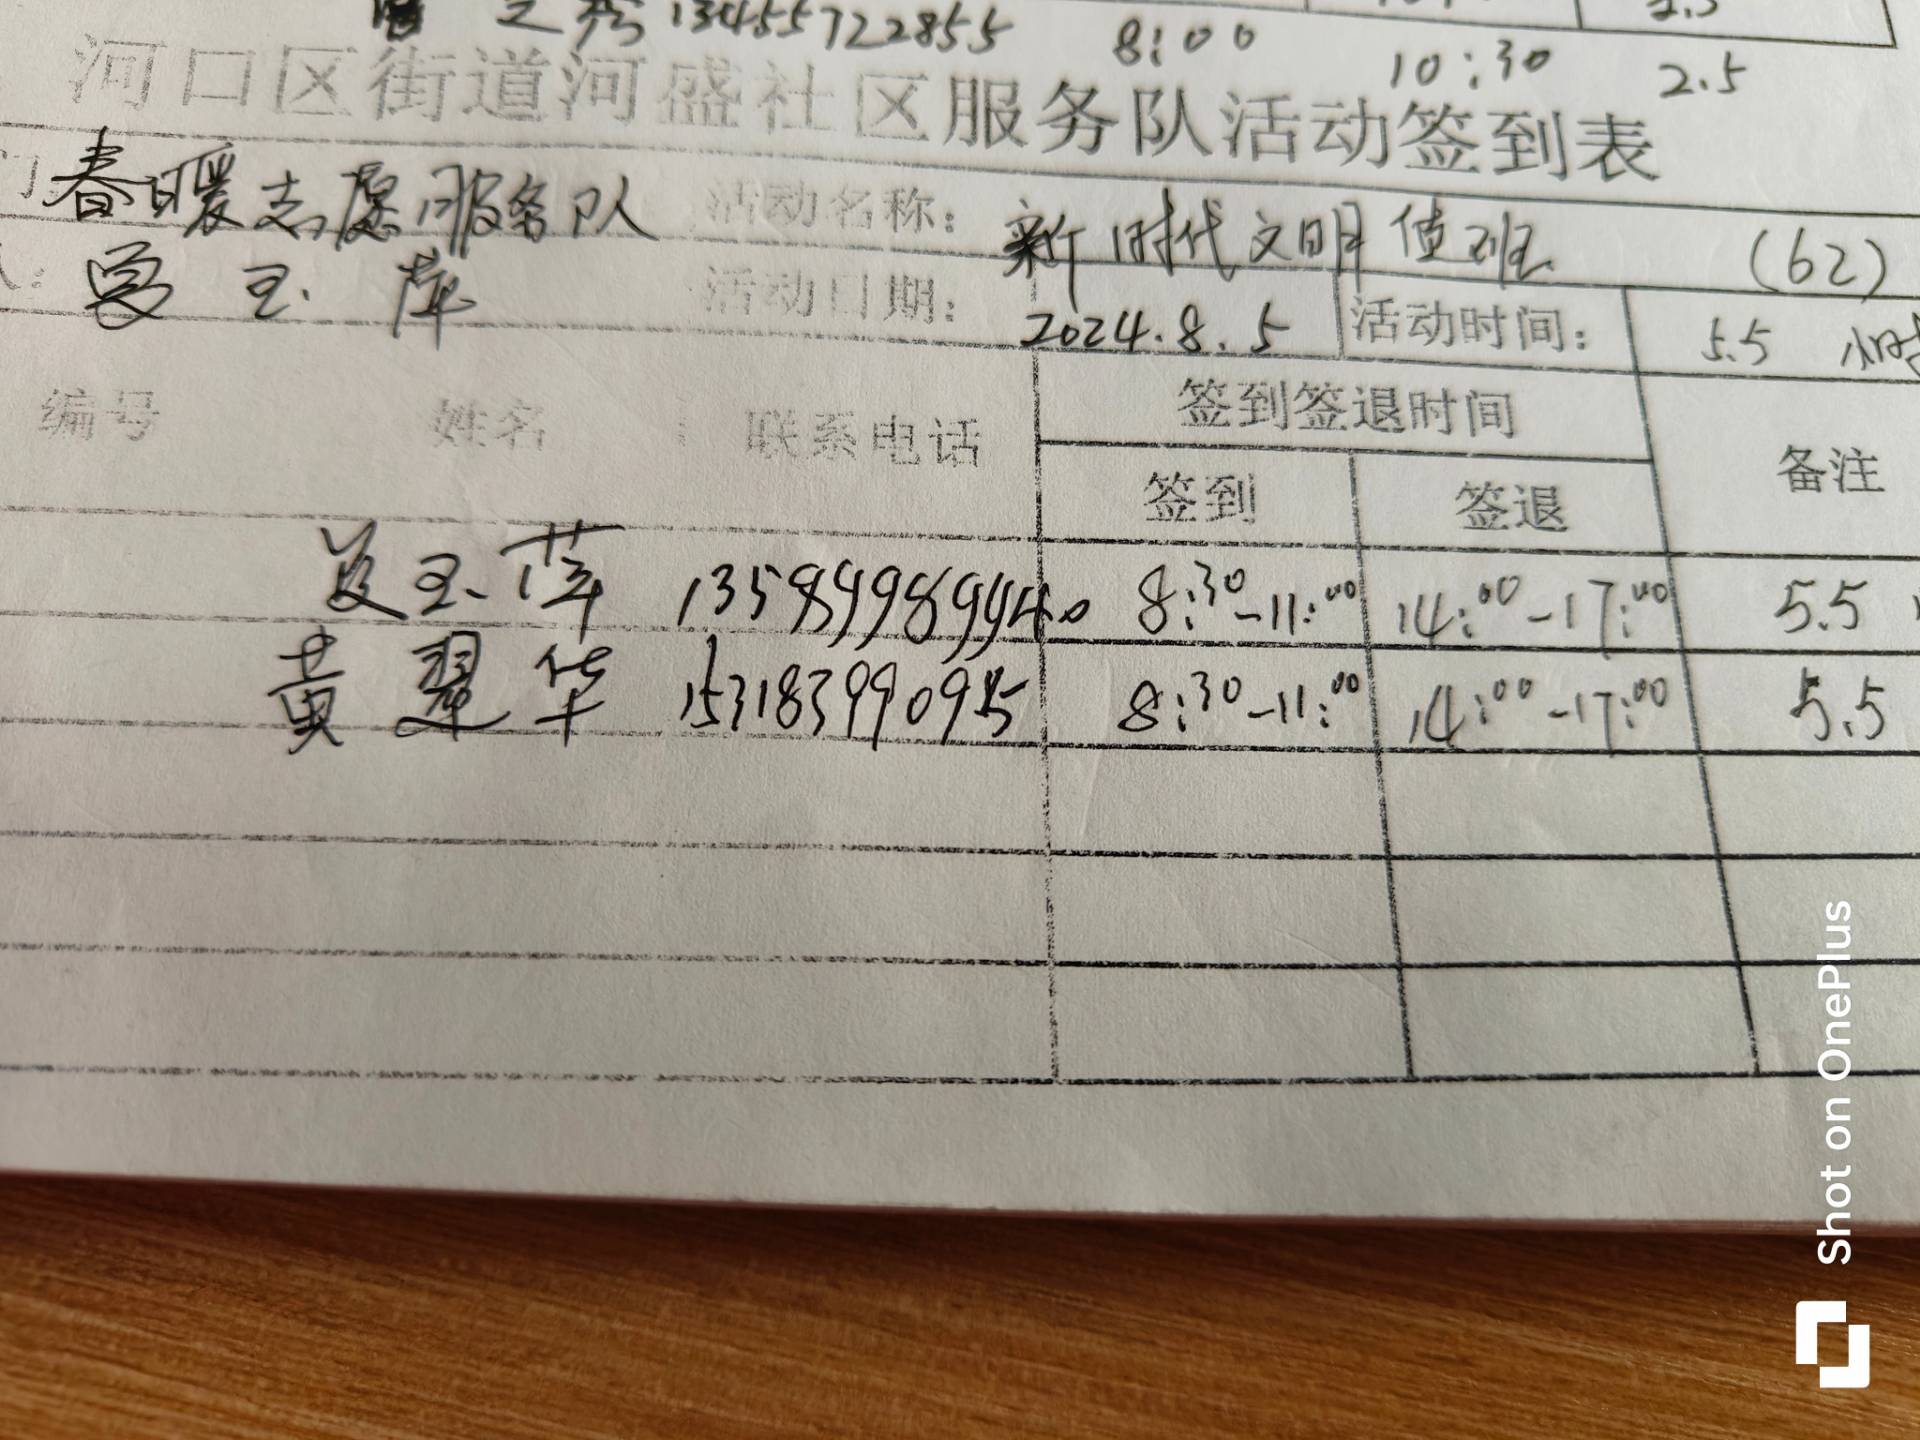 13455722855 8:00 10:30 2.5
河口区街道河盛社区服务队活动签到表
春暖志愿服务队 活动名称: 新时代文明值班 (62)
玉萍 活动日期: 2024.8.5 活动时间: 5.5 小时
编号 姓名 联系电话 签到签退时间 备注
签到 签退
玉萍 8:30-11:00 14:00-17:00 5.5
黄翠华 15318399095 8:30-11:00 14:00-17:00 5.5
Shot on OnePlus